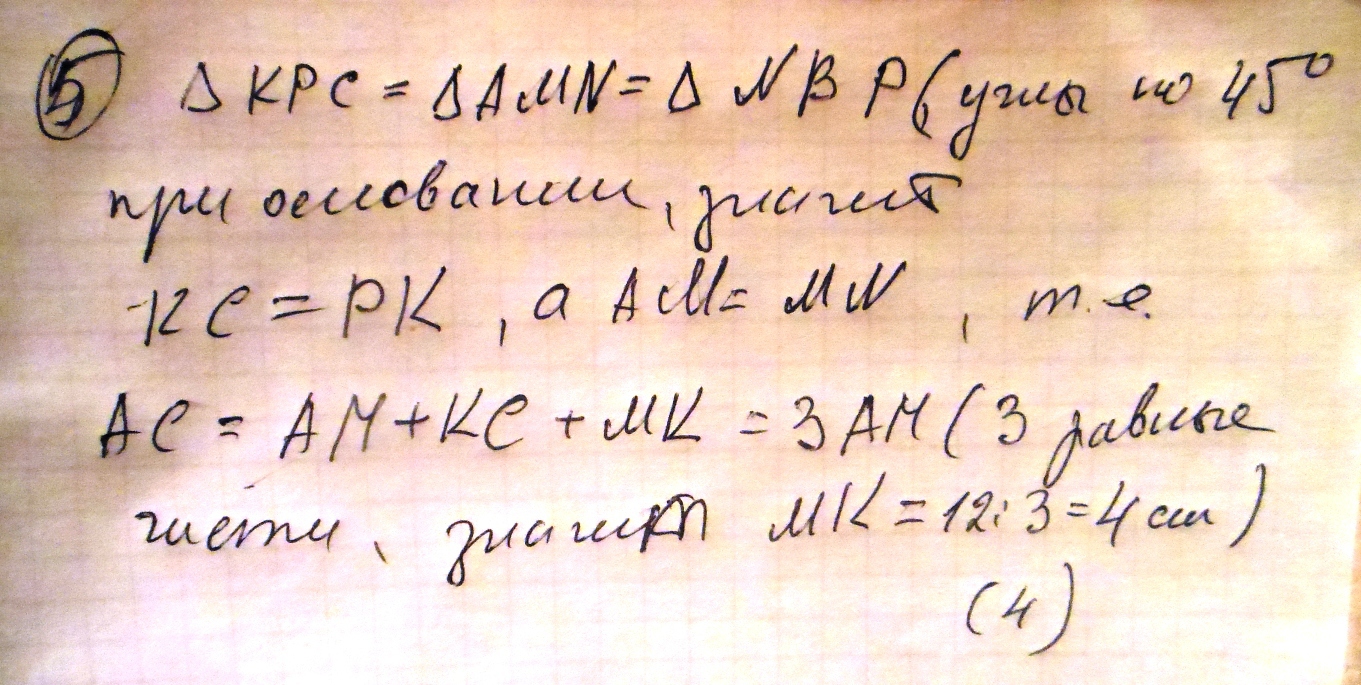 5 Δ KPC = Δ AMN = Δ NBP (углы по 45°
при основании, значит
KC = PK, а AM = MN, т.е.
AC = AM + KC + MK = 3 AM (3 равные
части, значит MK = 12 : 3 = 4 см)
(4)